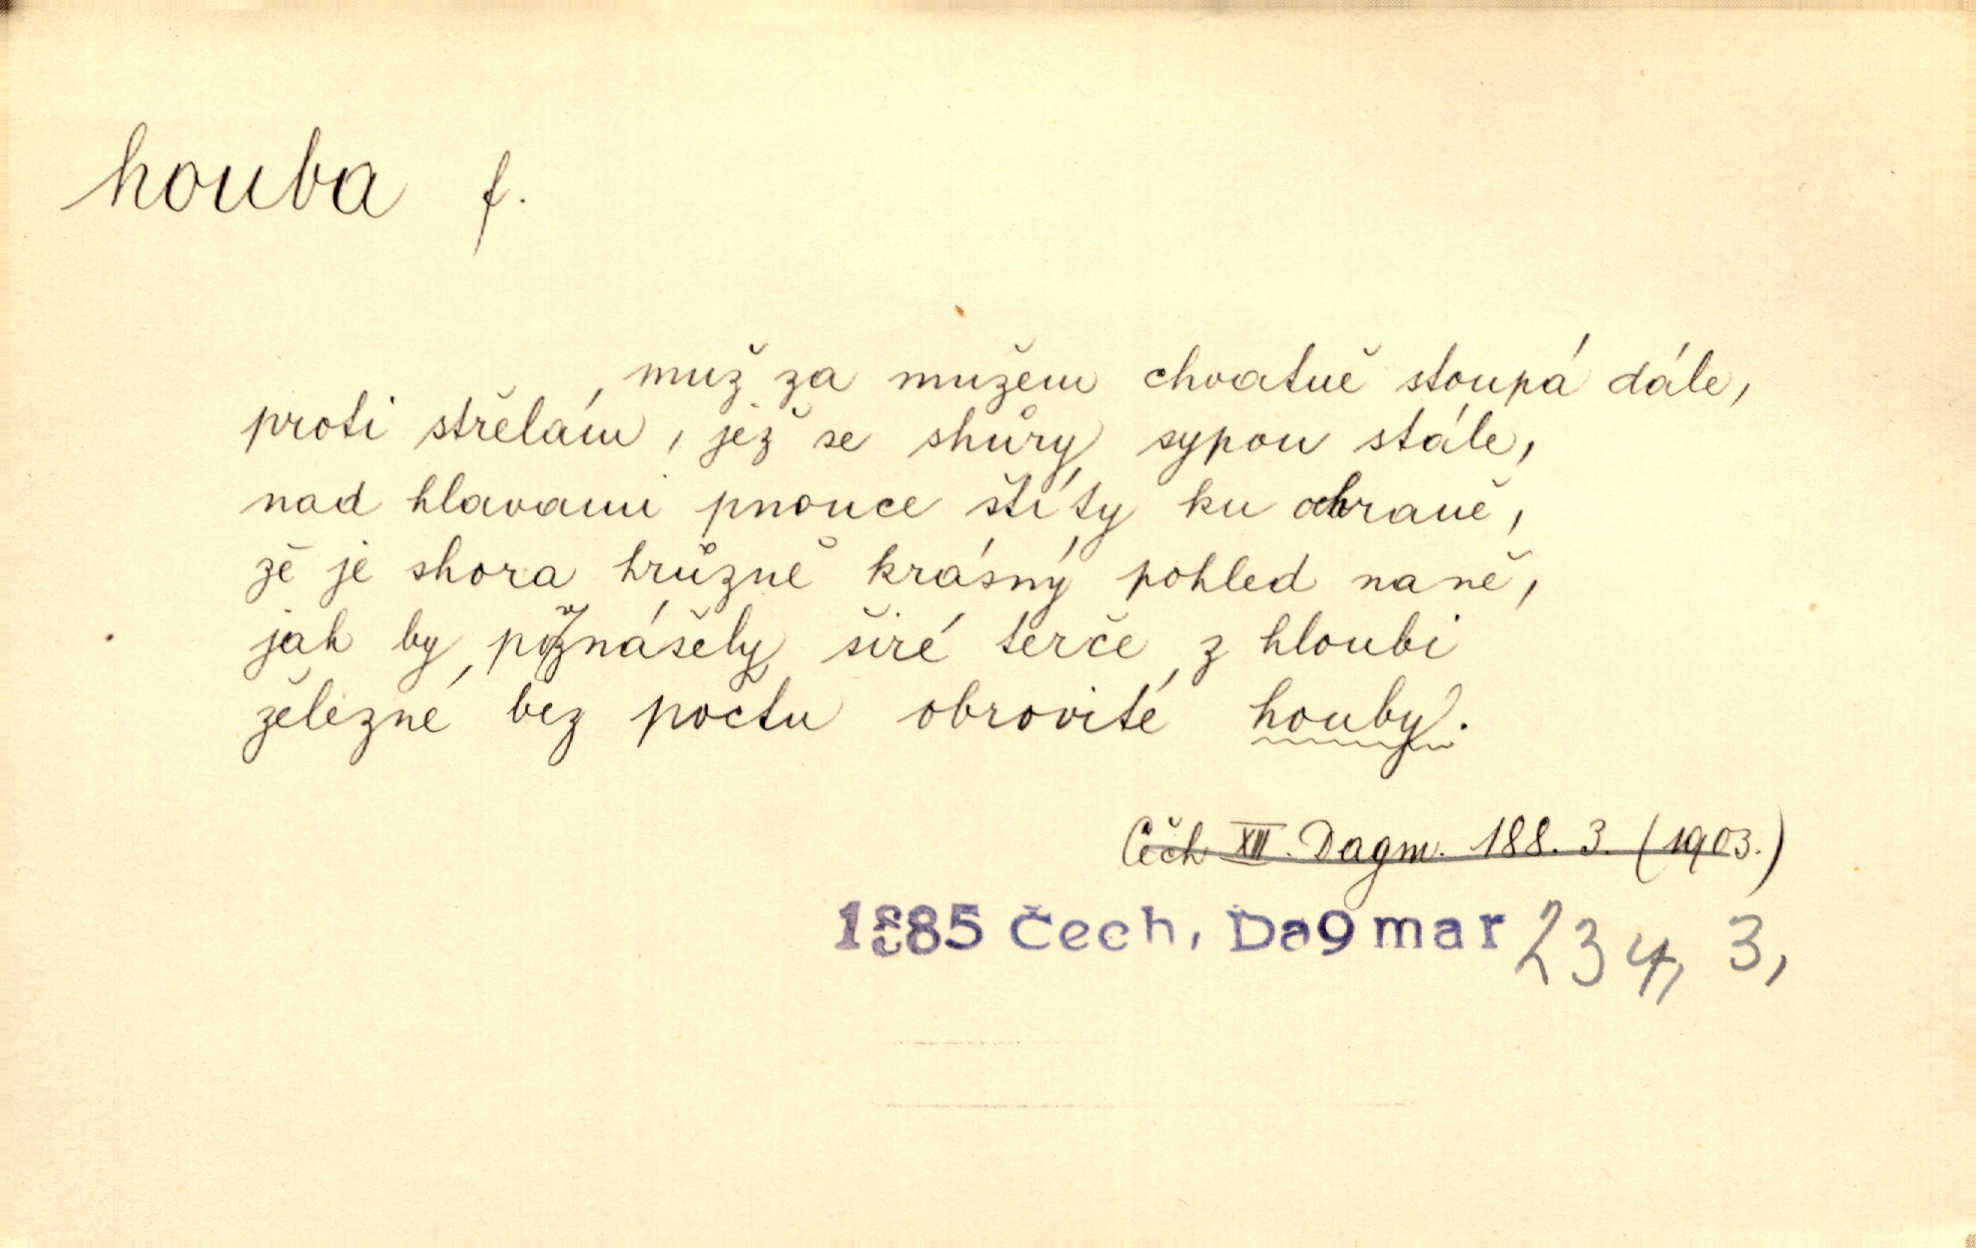 houba f.
muž za mužem chvatně stoupá dále,
proti střelám, jež se shůry sypou stále,
nad hlavami pnouce štíty ku ochraně,
že je shora hrůzně krásný pohled naně,
jak by vznášely širé terče z hloubi
železné bez počtu obrovité houby.
Čech XIII. Dagm. 188. 3. (1903.)
1885 Čech, Dagmar 234, 3,